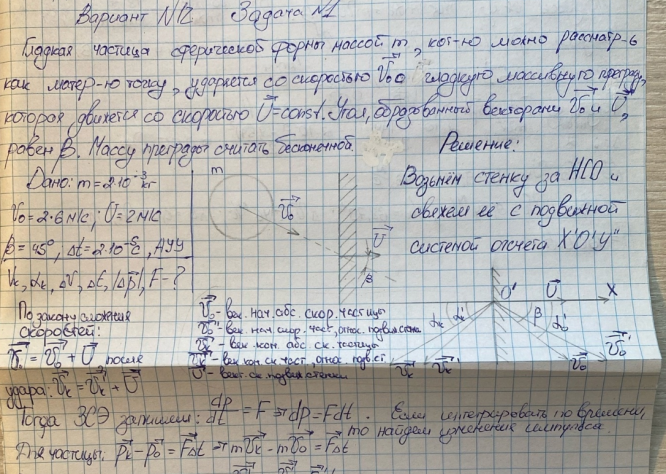 Вариант N12 Задача N1
Гладкая частица сферической формы массой m, кот-ю можно рассматр-ь
как матер-ю точку, ударяется со скоростью V₀ о гладкую массивную преграду,
которая движется со скоростью U=const. Угол, образованный векторами V₀ и U,
равен β. Массу преграды считать бесконечной.
Дано: m=2·10⁻³ кг
V₀=2·6 м/с; U=2 м/с
β=45°, Δt=2·10⁻⁵с, АУУ
Vₖ, αₖ, ΔV, ΔE, |Δp|, F-?
m
V₀
U
β
Решение:
Возьмём стенку за НСО и
свяжем её с подвижной
системой отсчёта X'O'Y"
O' U X
αₖ αₖ' β α₀'
Vₖ Vₖ' V₀ V₀'
По закону сложения
скоростей:
V₀ = V₀' + U после
удара: Vₖ = Vₖ' + U
V₀ - век. нач. абс. скор. частицы
V₀' - век нач скор. част, относ. подвиж стен
Vₖ - век кон абс. ск. частицы
Vₖ' - век кон ск част. относ. подв. ст
U - вект. ск. подвиж стенки
Тогда ЗСЭ запишем: dp/dt = F ⇒ dp = Fdt. Если интегрировать по времени,
то найдём изменение импульса.
Для частицы: pₖ - p₀ = FΔt ⇒ mVₖ - mV₀ = FΔt